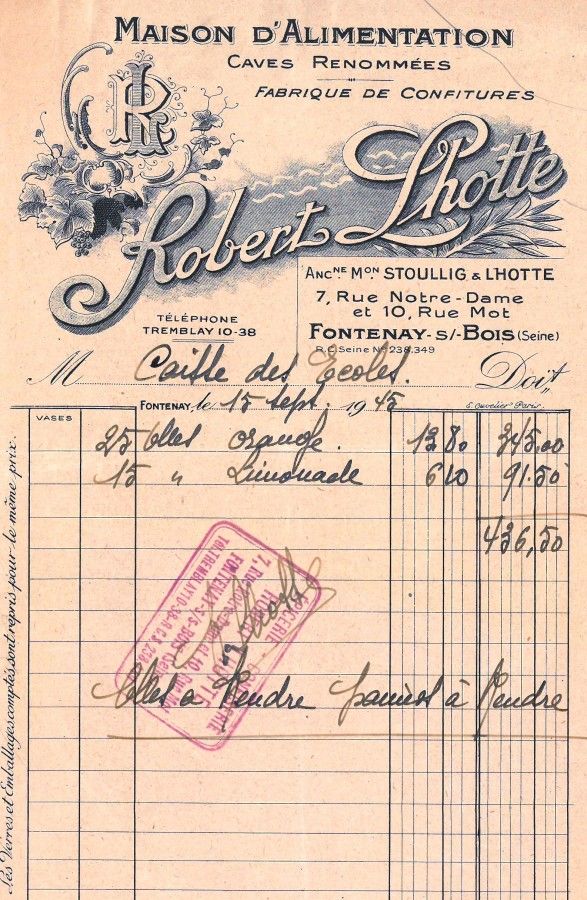 MAISON D'ALIMENTATION
CAVES RENOMMÉES
FABRIQUE DE CONFITURES
RL
Robert Lhotte
ANCNE MON. STOULLIG & LHOTTE
7, Rue Notre-Dame
et 10, Rue Mot
TÉLÉPHONE
TREMBLAY 10-38
FONTENAY-S/-BOIS (Seine)
R.C. Seine No 238.349
M Caisse des Ecoles. Doit
FONTENAY, le 15 Sept. 1945
S. Cuvelier Paris.
VASES
25 blles orange. 13 80 345,00
15 " Limonade 6 10 91.50
436,50
EPICERIE
7, Rue Notre-Dame et 10, Rue Mot
FONTENAY-S/S-BOIS
TÉL. TREMBLAY 10-38 - R.C.S. 238
blles a Rendre à Rendre
Les Verres et Emballages comptés sont repris pour le même prix.